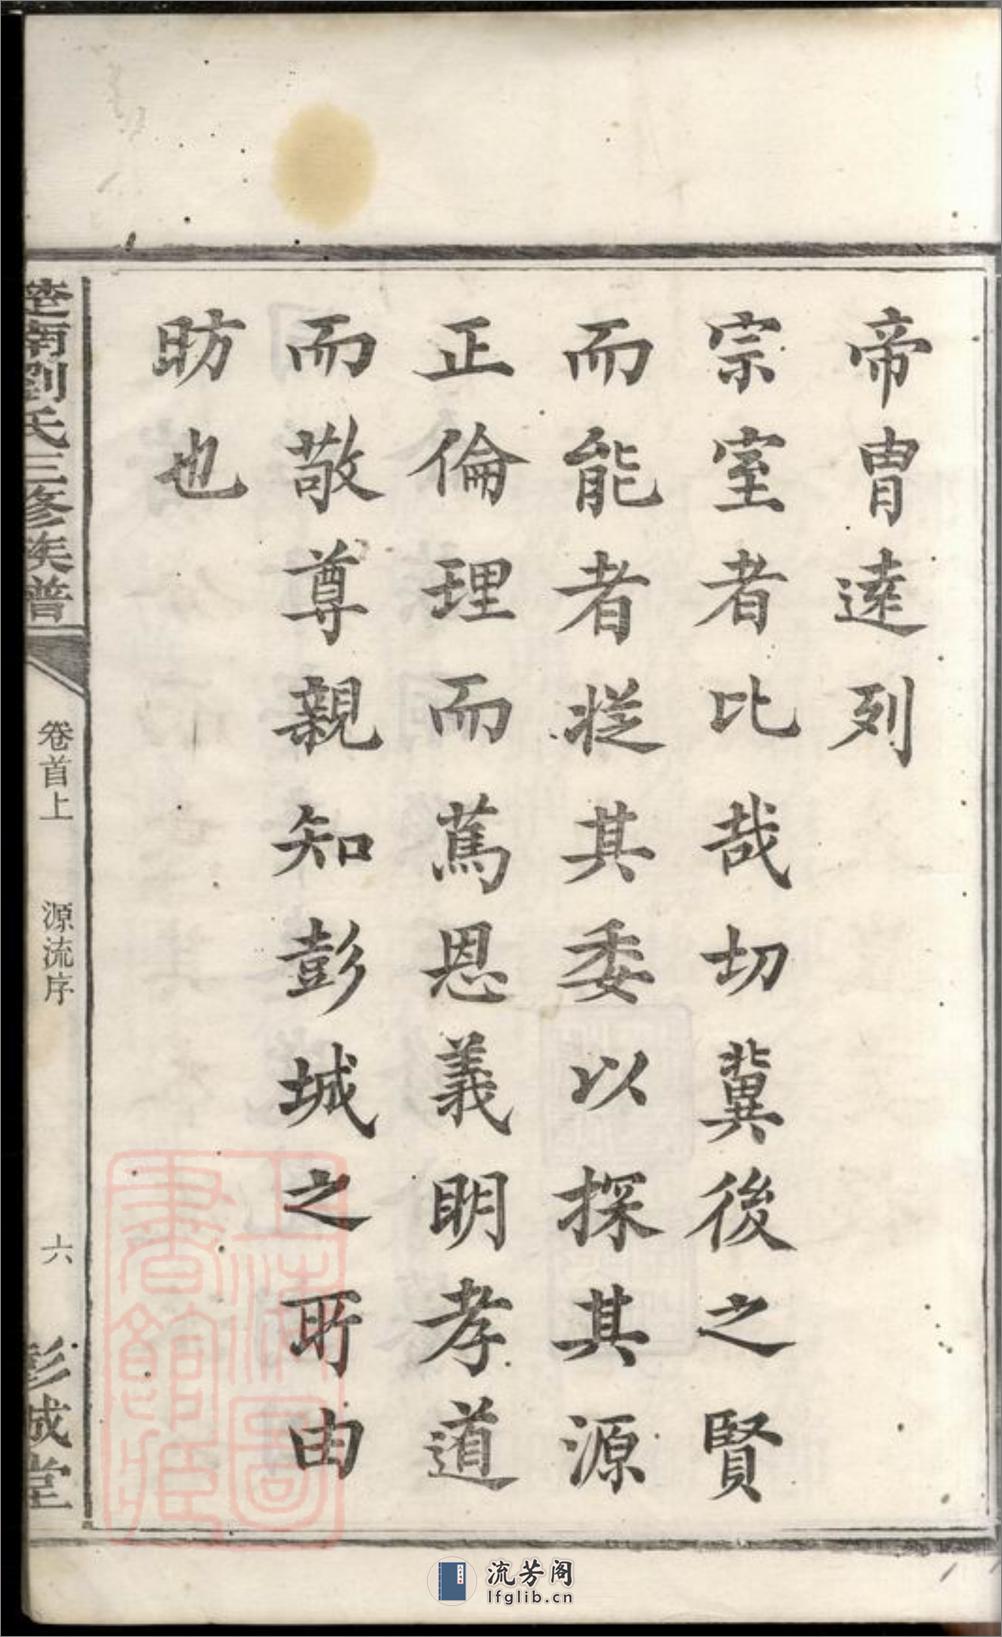 帝胄達列
宗室者比哉切冀後之賢
而能者從其委以探其源
正倫理而篤恩義明孝道
而敬尊親知彭城之所由
昉也
楚南劉氏三修族譜
卷首上
源流序
六
彭城堂
上海圖書館藏
流芳阁
lfglib.cn